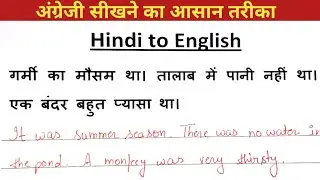 अंग्रेजी सीखने का आसान तरीका
Hindi to English
गर्मी का मौसम था। तालाब में पानी नहीं था।
एक बंदर बहुत प्यासा था।
It was summer season. There was no water in
the pond. A monkey was very thirsty.